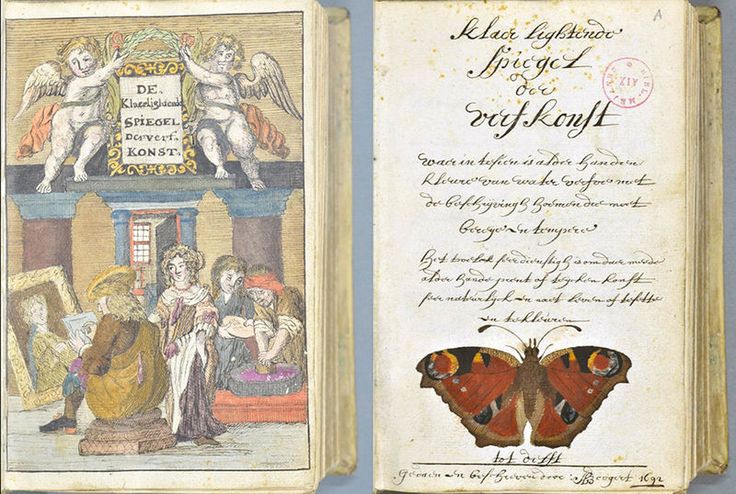 DE.
Klaerlightende
SPIEGEL
Der verf.
KONST.
A
klaer lightende
Spiegel
der
verfkonst
waer in te sien is alder handen
kleure van water verfve met
de beschrijvingh hoemen die moet
berege en tempere
Het boek seer dienstigh is om daer mede
alder hande prent of teycken konst
seer natuerlyck en naer leven of
en te kleuren
tot delft
gedaen en beschreven door: ABoogert 1692